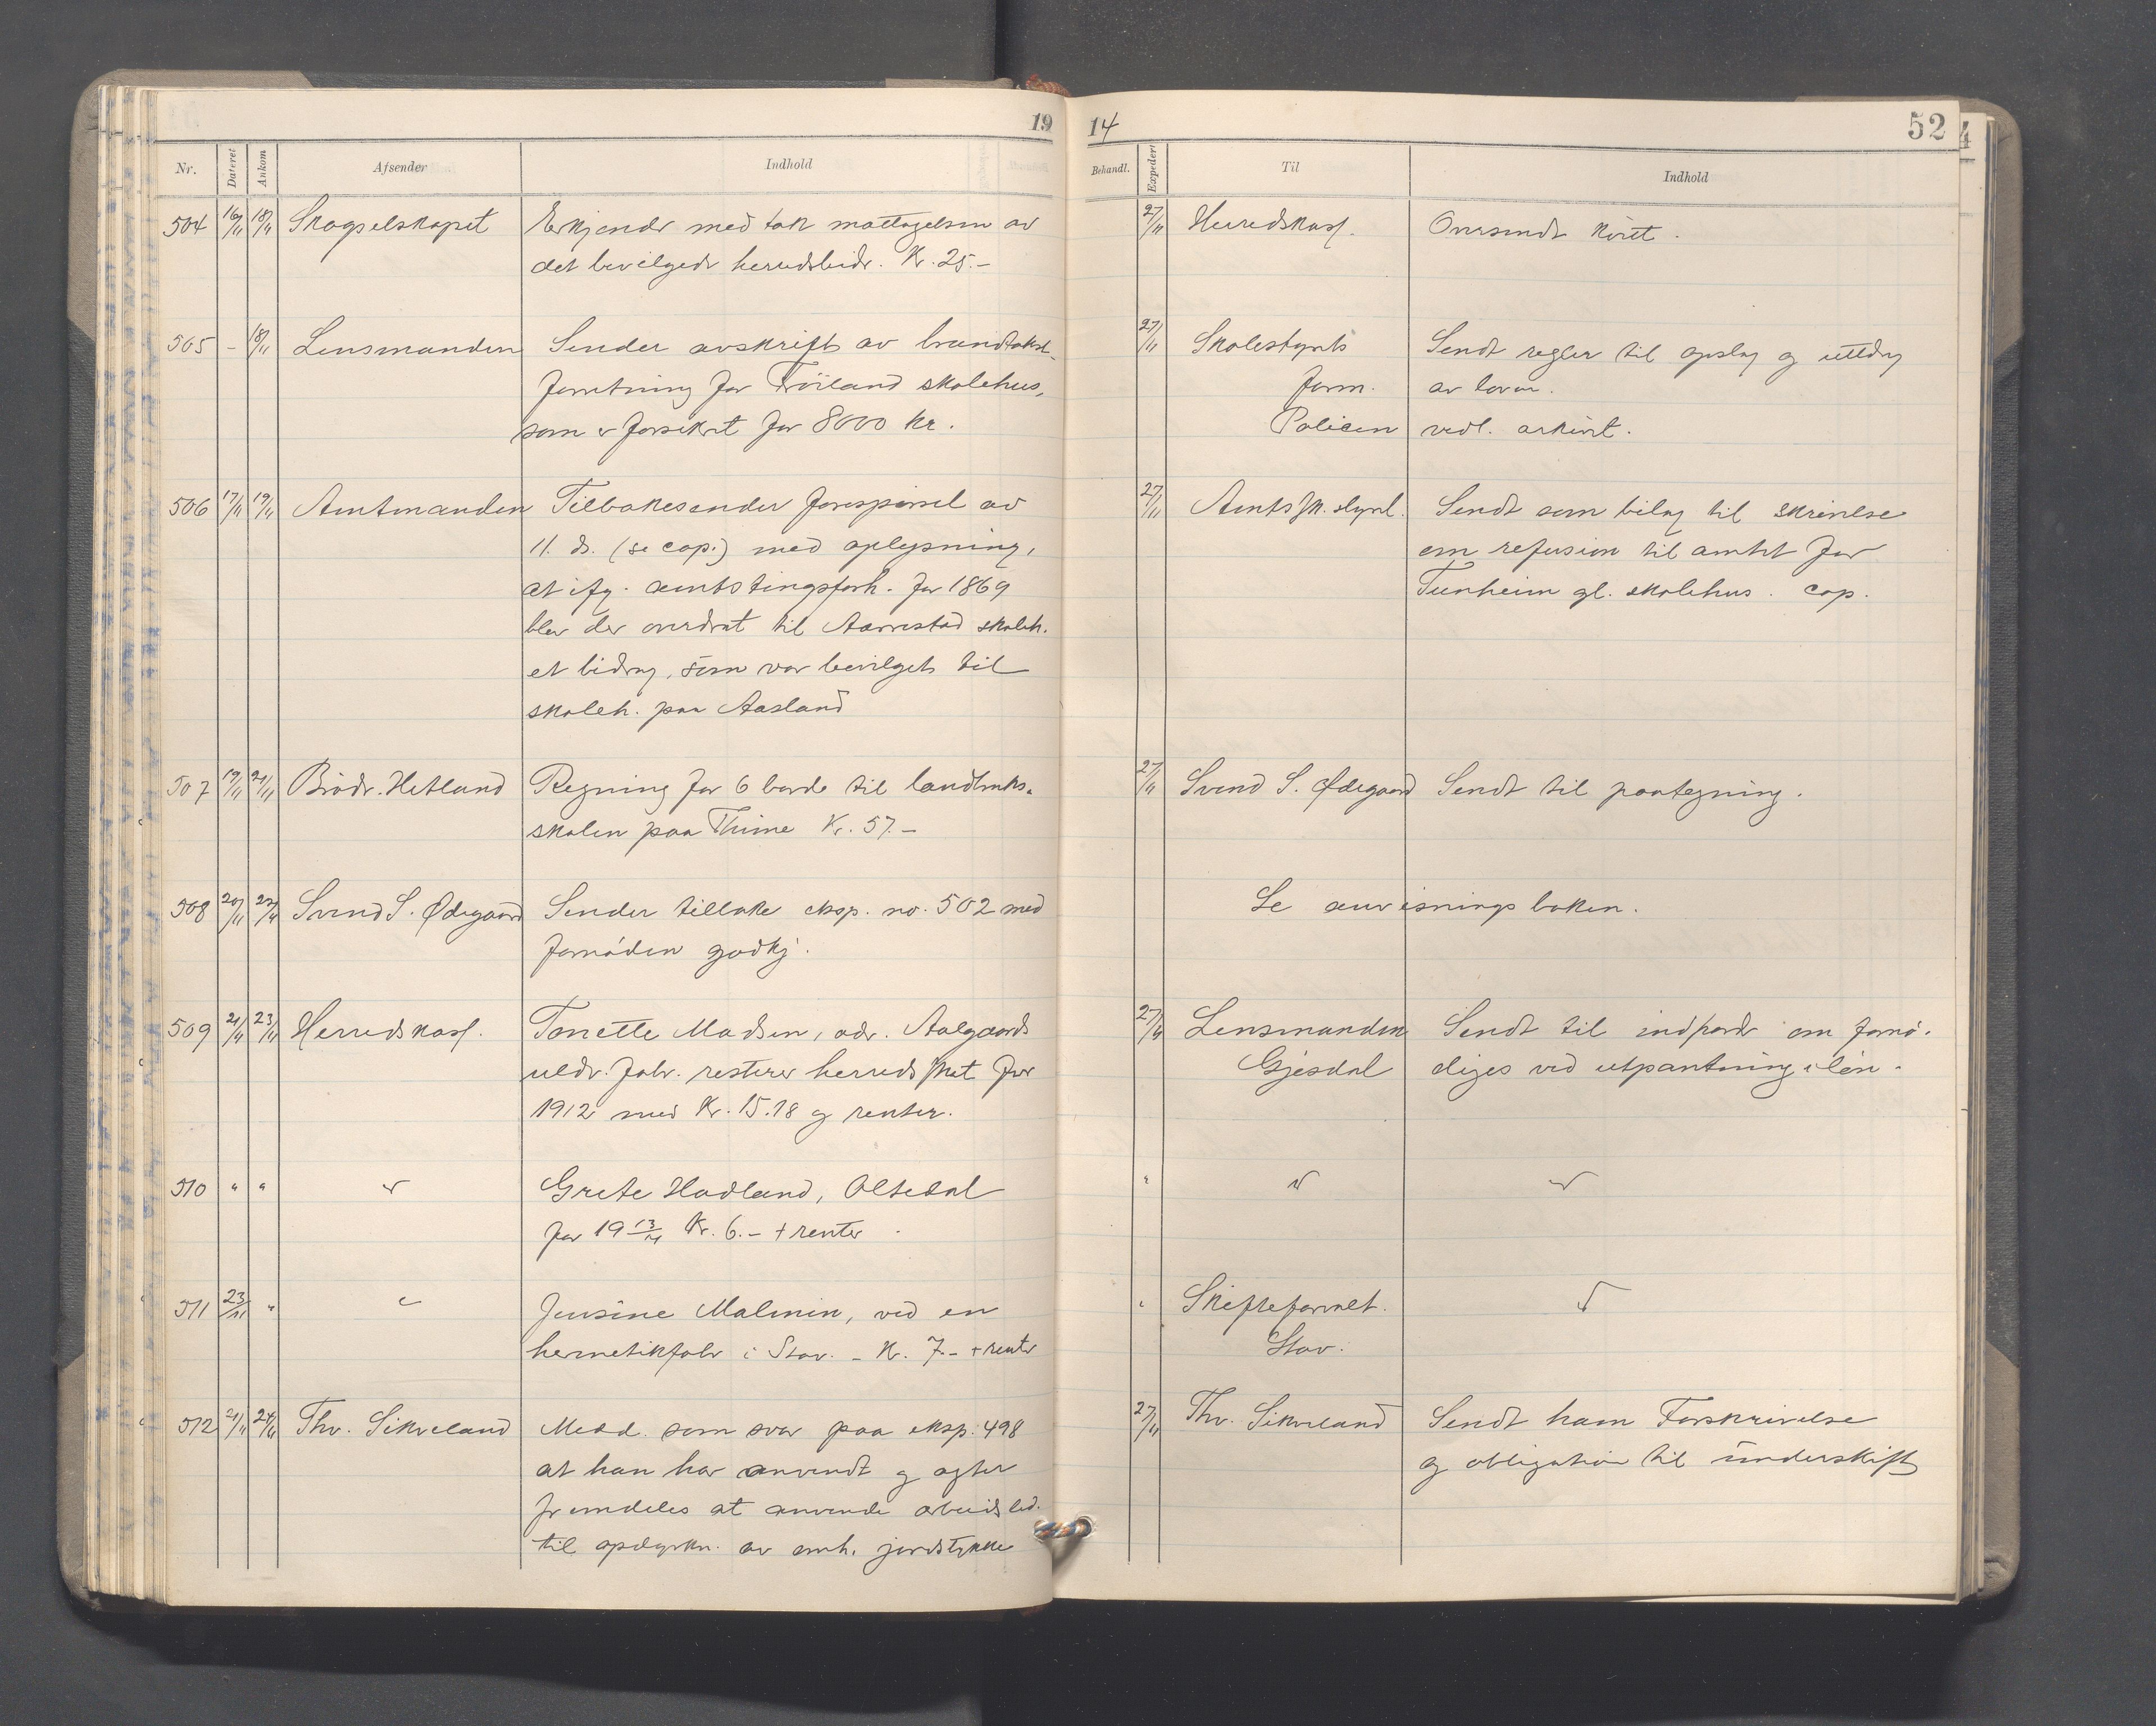 19
Nr. Dateret Ankom Afsender Indhold
504 16/11 18/11 Skogselskapet Erkjender med tak mottagelsen av
det bevilgede herredsbidr. Kr. 25.-
505 - 18/11 Lensmanden Sender avskrift av brandtakst-
forretning for Frøiland skolehus,
som er forsikret for 8000 kr.
506 17/11 19/11 Amtmanden Tilbakesender forespørsel av
11. ds. (se cop.) med oplysning,
at ifg. amtstingsforh. for 1869
blev der overdrat til Aarrestad skoleh.
et bidrag, som var bevilget til
skoleh. paa Aasland
507 19/11 21/11 Brødr. Hetland Regning for 6 borde til landbruks-
skolen paa Thime Kr. 57.-
508 20/11 22/11 Svend S. Ødegaard Sender tilbake eksp. no. 502 med
fornøden godkj.
509 21/11 23/11 Herredskass. Tonette Madsen, adr. Aalgaards
uldv. fabr. resterer herredsskat for
1912 med Kr. 15.18 og renter.
510 " " " Grete Hadland, Oltedal
for 19 13/14 Kr. 6.- + renter
511 23/11 " " Jensine Malmin, ved en
hermetikfabr i Stav. - Kr. 7.- + renter
512 21/11 24/11 Thv. Sikveland Medd. som svar paa eksp. 498
at han har anvendt og agter
fremdeles at anvende arbeidsled.
til opdyrkn. av omh. jordstykke
14 52
Behandl. Expedert Til Indhold
27/11 Herredskass. Oversendt kvit.
27/11 Skolestyrets Sendt regler til opslag og utdrag
form. av loven.
Policen vedl. arkivet.
27/11 Amtssk.styret. Sendt som bilag til skrivelse
om refusion til amtet for
Tunheim gl. skolehus. cop.
27/11 Svend S. Ødegaard Sendt til paategning.
Se anvisningsboken.
27/11 Lensmanden Sendt til indfordr om fornø-
Gjesdal diges ved utpantning i løn.
" " "
" Skifteforvalt. "
Stav.
27/11 Thv. Sikveland Sendt ham Forskrivelse
og obligation til underskift